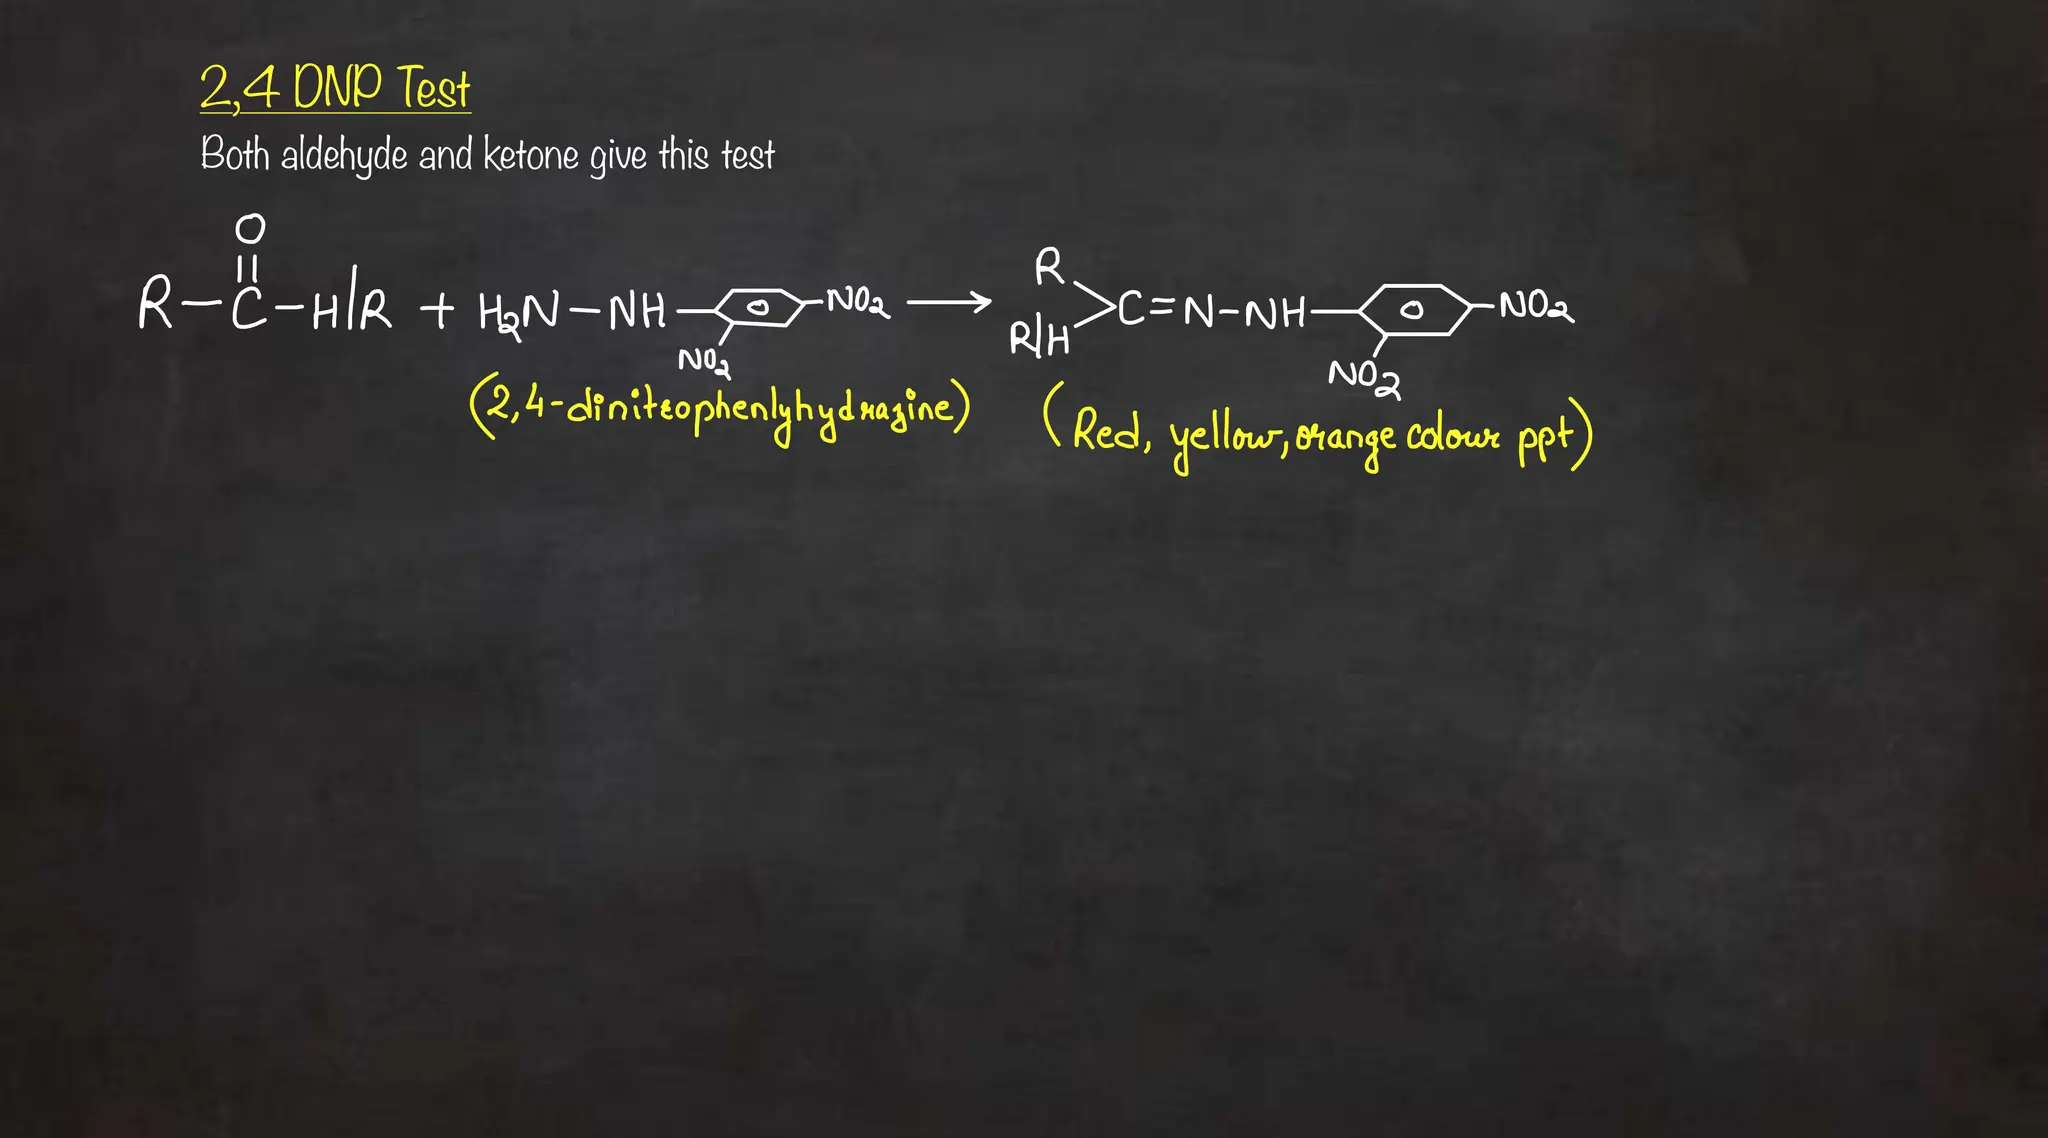 2,4 DNP Test
Both aldehyde and ketone give this test
O
R-C-H/R + H₂N-NH- -NO₂ → R R/H >C=N-NH- -NO₂
NO₂ NO₂
(2,4-dinitrophenlyhydrazine) (Red, yellow, orange colour ppt)